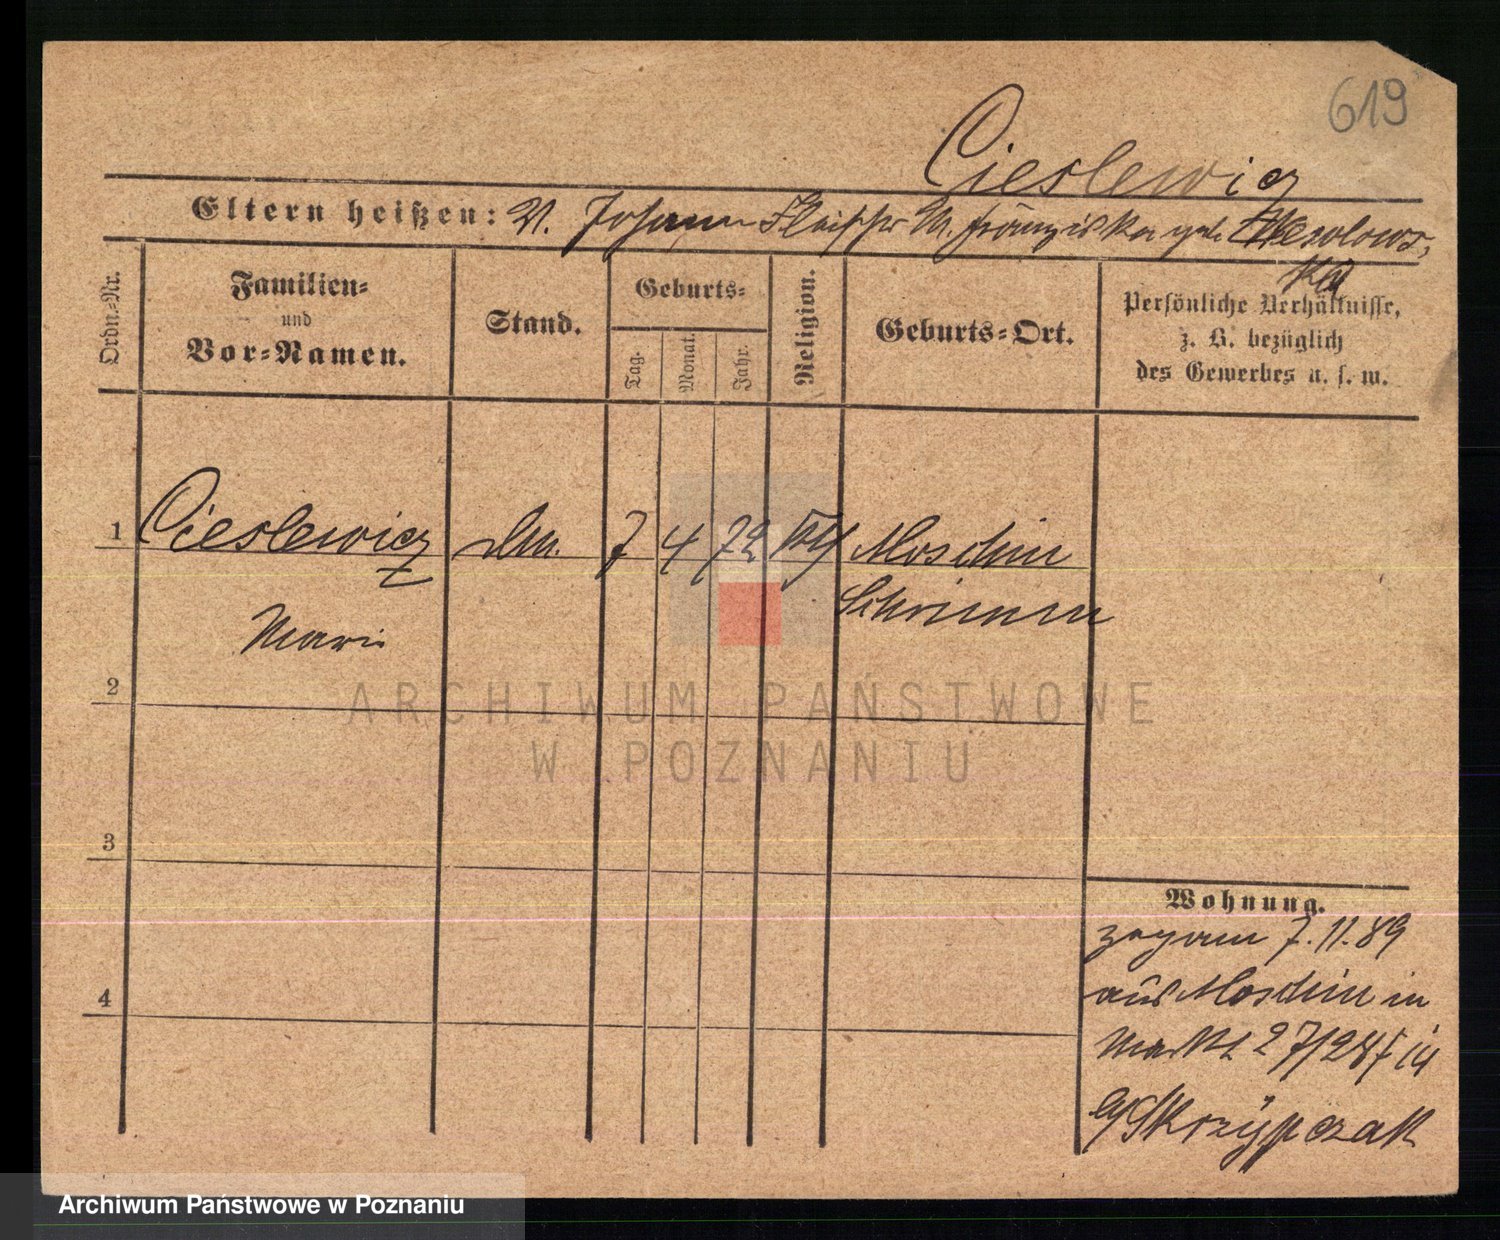 619
Cieslewicz
Eltern heißen: V. Johann Fleischer M. Franziska geb.
Ordn.-Nr.
Familien-
und
Vor-Namen.
Stand.
Geburts-
Tag.
Monat.
Jahr.
Religion.
Geburts-Ort.
Persönliche Verhältnisse,
z. B. bezüglich
des Gewerbes u. s. w.
1 Cieslewicz 7 4 72 Moschin
Schrimm
Marie
2
3
4
Wohnung.
zogam 7.11.89
aus Moschin in
Markt 27/28
Skrzypczak
ARCHIWUM PAŃSTWOWE
W POZNANIU
Archiwum Państwowe w Poznaniu